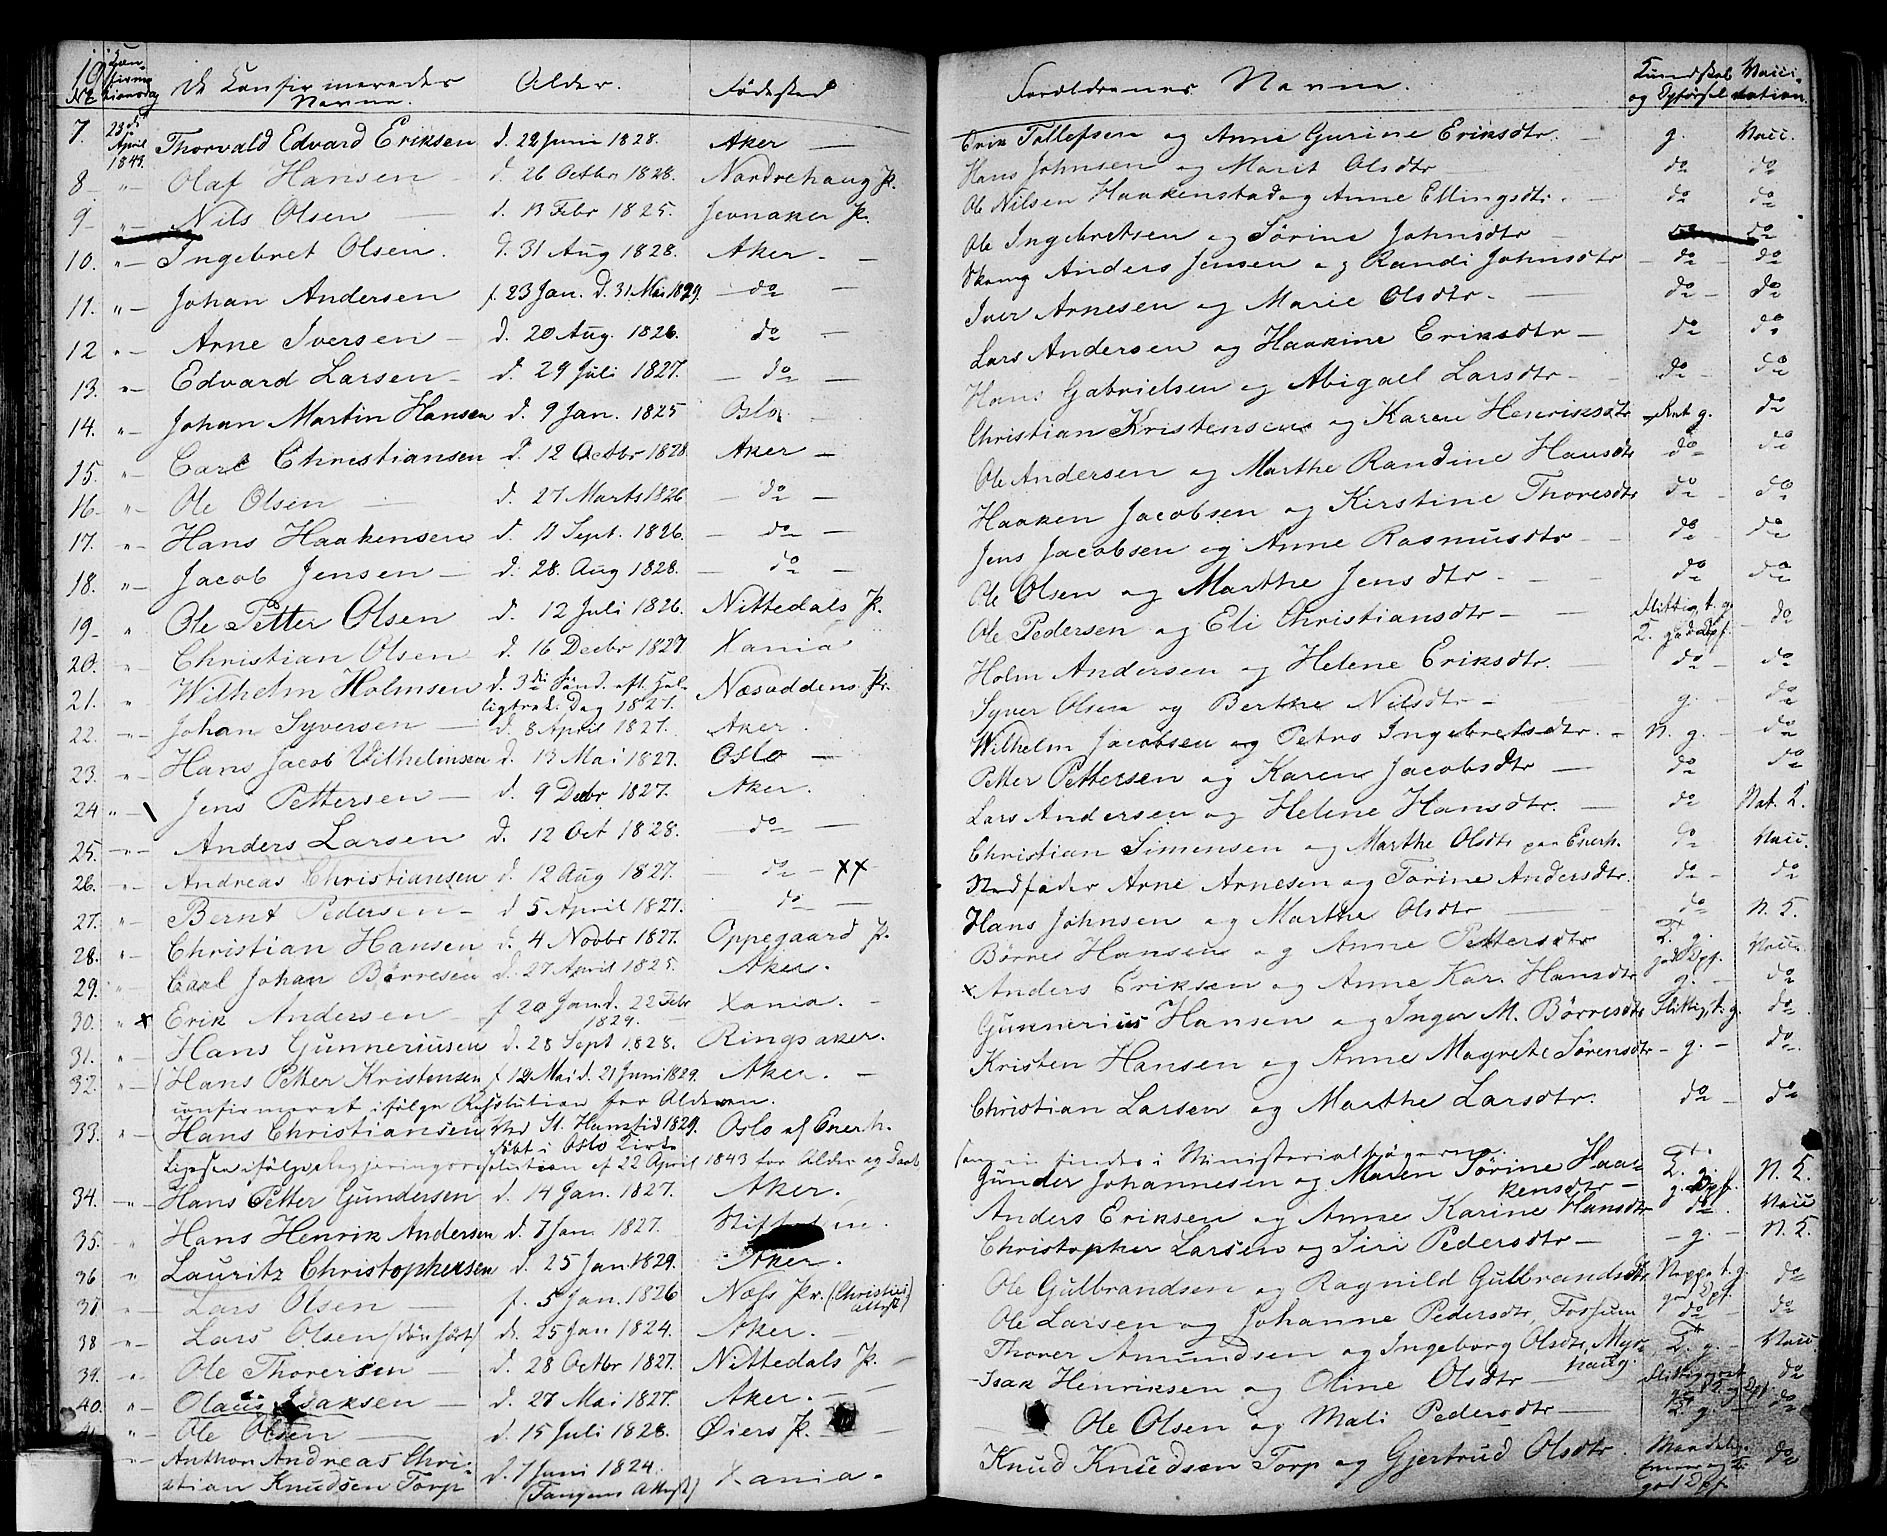 19
No
Confirmationsdag
De Confirmeredes Navne.
Alder.
Fødested
Forældrenes Navne.
Kundskab og Opførsel
Vaccination.
7. 23de April 1843. Thorvald Edvard Eriksen d. 22 Juni 1828. Aker —
8 — " — Olaf Hansen — d. 26 Octbr 1828. Nordrehaug P.
9 — " — Nils Olsen — d. 13 Febr 1825. Jevnaker P.
10. " — Ingebret Olsen. d. 31 Aug 1828. Aker. —
11. " — Johan Andersen f. 23 Jan. d. 31 Mai 1829. — do —
12 " — Arne Iversen — d. 20 Aug. 1826. do —
13. " — Edvard Larsen — d. 29 Juli 1827. — do —
14. " — Johan Martin Hansen d. 9 Jan. 1825 Oslo. —
15. " Carl Christiansen d. 12 Octbr 1828 Aker —
16 — " — Ole Olsen — d. 27 Marts 1826 — do —
17. " — Hans Haakensen d. 11 Sept. 1826. — do —
18. " — Jacob Jensen — d. 28. Aug 1828. — do —
19 — " Ole Petter Olsen d. 12 Juli 1826. Nittedals P.
20. " — Christian Olsen d. 16 Decbr 1827 Xania
21. " Wilhelm Holmsen d. 3die Sønd. eft. Helligtre K. Dag 1827. Næsoddens Pr.
22. " — Johan Syversen — d. 8 April 1827. Aker.
23. " — Hans Jacob Vilhelmsen d. 13 Mai 1827. Oslo —
24 " — Jens Pettersen — d. 9 Decbr 1827. Aker.
25. " — Anders Larsen d. 12 Oct 1828. — do —
26. " — Andreas Christiansen d. 12 Aug 1827. — do — XX
27. " Bernt Pedersen — d 5 April 1827. do —
28. " — Christian Hansen d. 4 Novbr 1827. Oppegaard P.
29. " Carl Johan Børresen d. 27 April 1825. Aker.
30. " x Erik Andersen — f 20 Jan d. 22 Febr 1829. Xania. —
31. " — Hans Gunneriusen d. 28 Sept 1828. Ringsaker.
32. " — Hans Petter Kristensen f 12 Mai d. 21 Juni 1829. Aker. —
confirmeret ifølge Resolution for Alderen.
33. " — Hans Christiansen Ved St. Hanstid 1829. døbt i Oslo Kirke Oslo af Enerh.
Ligesen ifølge Regjeringsresolution af 22 April 1843 for Alder og Daab
34. " — Hans Petter Gundersen d. 14 Jan. 1827. Aker.
35. " Hans Henrik Andersen d. 7 Jan 1827.
36 " Lauritz Christophersen d. 25 Jan 1829. Aker.
37 " — Lars Olsen f. 5 Jan. 1826 Næss Pr. (Christies Attest)
38 " — Lars Olsen (døv født) d. 25 Jan 1824. Aker. —
39. " — Ole Thoversen — d. 28 Octbr 1827. Nittedals P. —
40. " — Olaus Isaksen — d. 27 Mai 1827. Aker. — —
" — Ole Olsen — d. 15 Juli 1828. Øiers P.
" — Anthon Andreas Christian Knudsen Torp d. 7 Juni 1824. (Tangens Attest) Xania.
Erik Tollefsen og Anne Gurine Eriksdtr. — g. Vacc.
Hans Johnsen og Marit Olsdtr — do do
Ole Nilsen Haakenstad og Anne Ellingsdtr. — do do
Ole Ingebretsen og Sørine Johnsdtr — do do
Skomg Anders Jensen og Randi Johnsdtr — do — do
Iver Arnesen og Marie Olsdtr. — do — do
Lars Andersen og Haakine Eriksdtr — do do
Hans Gabrielsen og Abigael Larsdtr — do — do
Christian Kristensen og Karen Henriksdtr g. do
Ole Andersen og Marthe Randine Hansdtr do — do
Haaken Jacobsen og Kirstine Thoresdtr do — do
Jens Jacobsen og Anne Rasmusdtr — do do
Ole Olsen og Marthe Jensdtr — do do
Ole Pedersen og Eli Christiansdtr — Flittig, t. g. do
Holm Andersen og Helene Eriksdtr. do — do
Syver Olsen og Berthe Nilsdtr — g. do
Wilhelm Jacobsen og Petro Ingebretsdtr. — N. g. — do
Petter Pettersen og Karen Jacobsdtr — do do
Lars Andersen og Helene Hansdtr. — do Nat. K.
Christian Simensen og Marthe Olsdtr paa Enerh. do Vacc.
Stedfader Arne Arnesen og Torine Andersdtr. do — do
Hans Johnsen og Marthe Olsdtr — do N. K.
Børre Hansen og Anne Pettersdtr g. Vacc.
x Anders Eriksen og Anne Kar. Hansdtr g. — do
Gunnerius Hansen og Inger M. Børresdtr Flittig, t. g. do
Kristen Hansen og Anne Magrete Sørensdtr — g. — do
Christian Larsen og Marthe Larsdtr. do — do
findes i Ministerialbøgerne.
Gunder Johannesen og Maren Sørine Haakensdtr — g. N. K.
Anders Eriksen og Anne Karine Hansdtr do. Vacc
Christopher Larsen og Siri Pedersdtr — — g. — N. K.
Ole Gulbrandsen og Ragnild Gulbrandsdtr Neppe t. g. god Opf. do
Ole Larsen og Johanne Pedersdtr, Fossum do — do
Thorer Amundsen og Ingeborg Olsdtr, Myrhaug. g. — Vacc
Isak Henriksen og Oline Olsdtr — do
Ole Olsen og Mali Pedersdtr — g. do
Knud Knudsen Torp og Gjertrud Olsdtr. god Opf. do